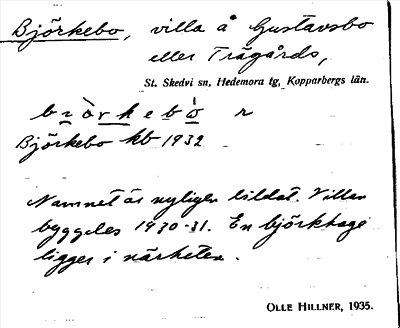 Björkebo, villa å Gustavsbo
eller Trägårds,
St. Skedvi sn, Hedemora tg, Kopparbergs län.
Björkebo kb 1932
Namnet är nyligen bildat. Villan
byggdes 1930-31. En björkhage
ligger i närheten.
OLLE HILLNER, 1935.